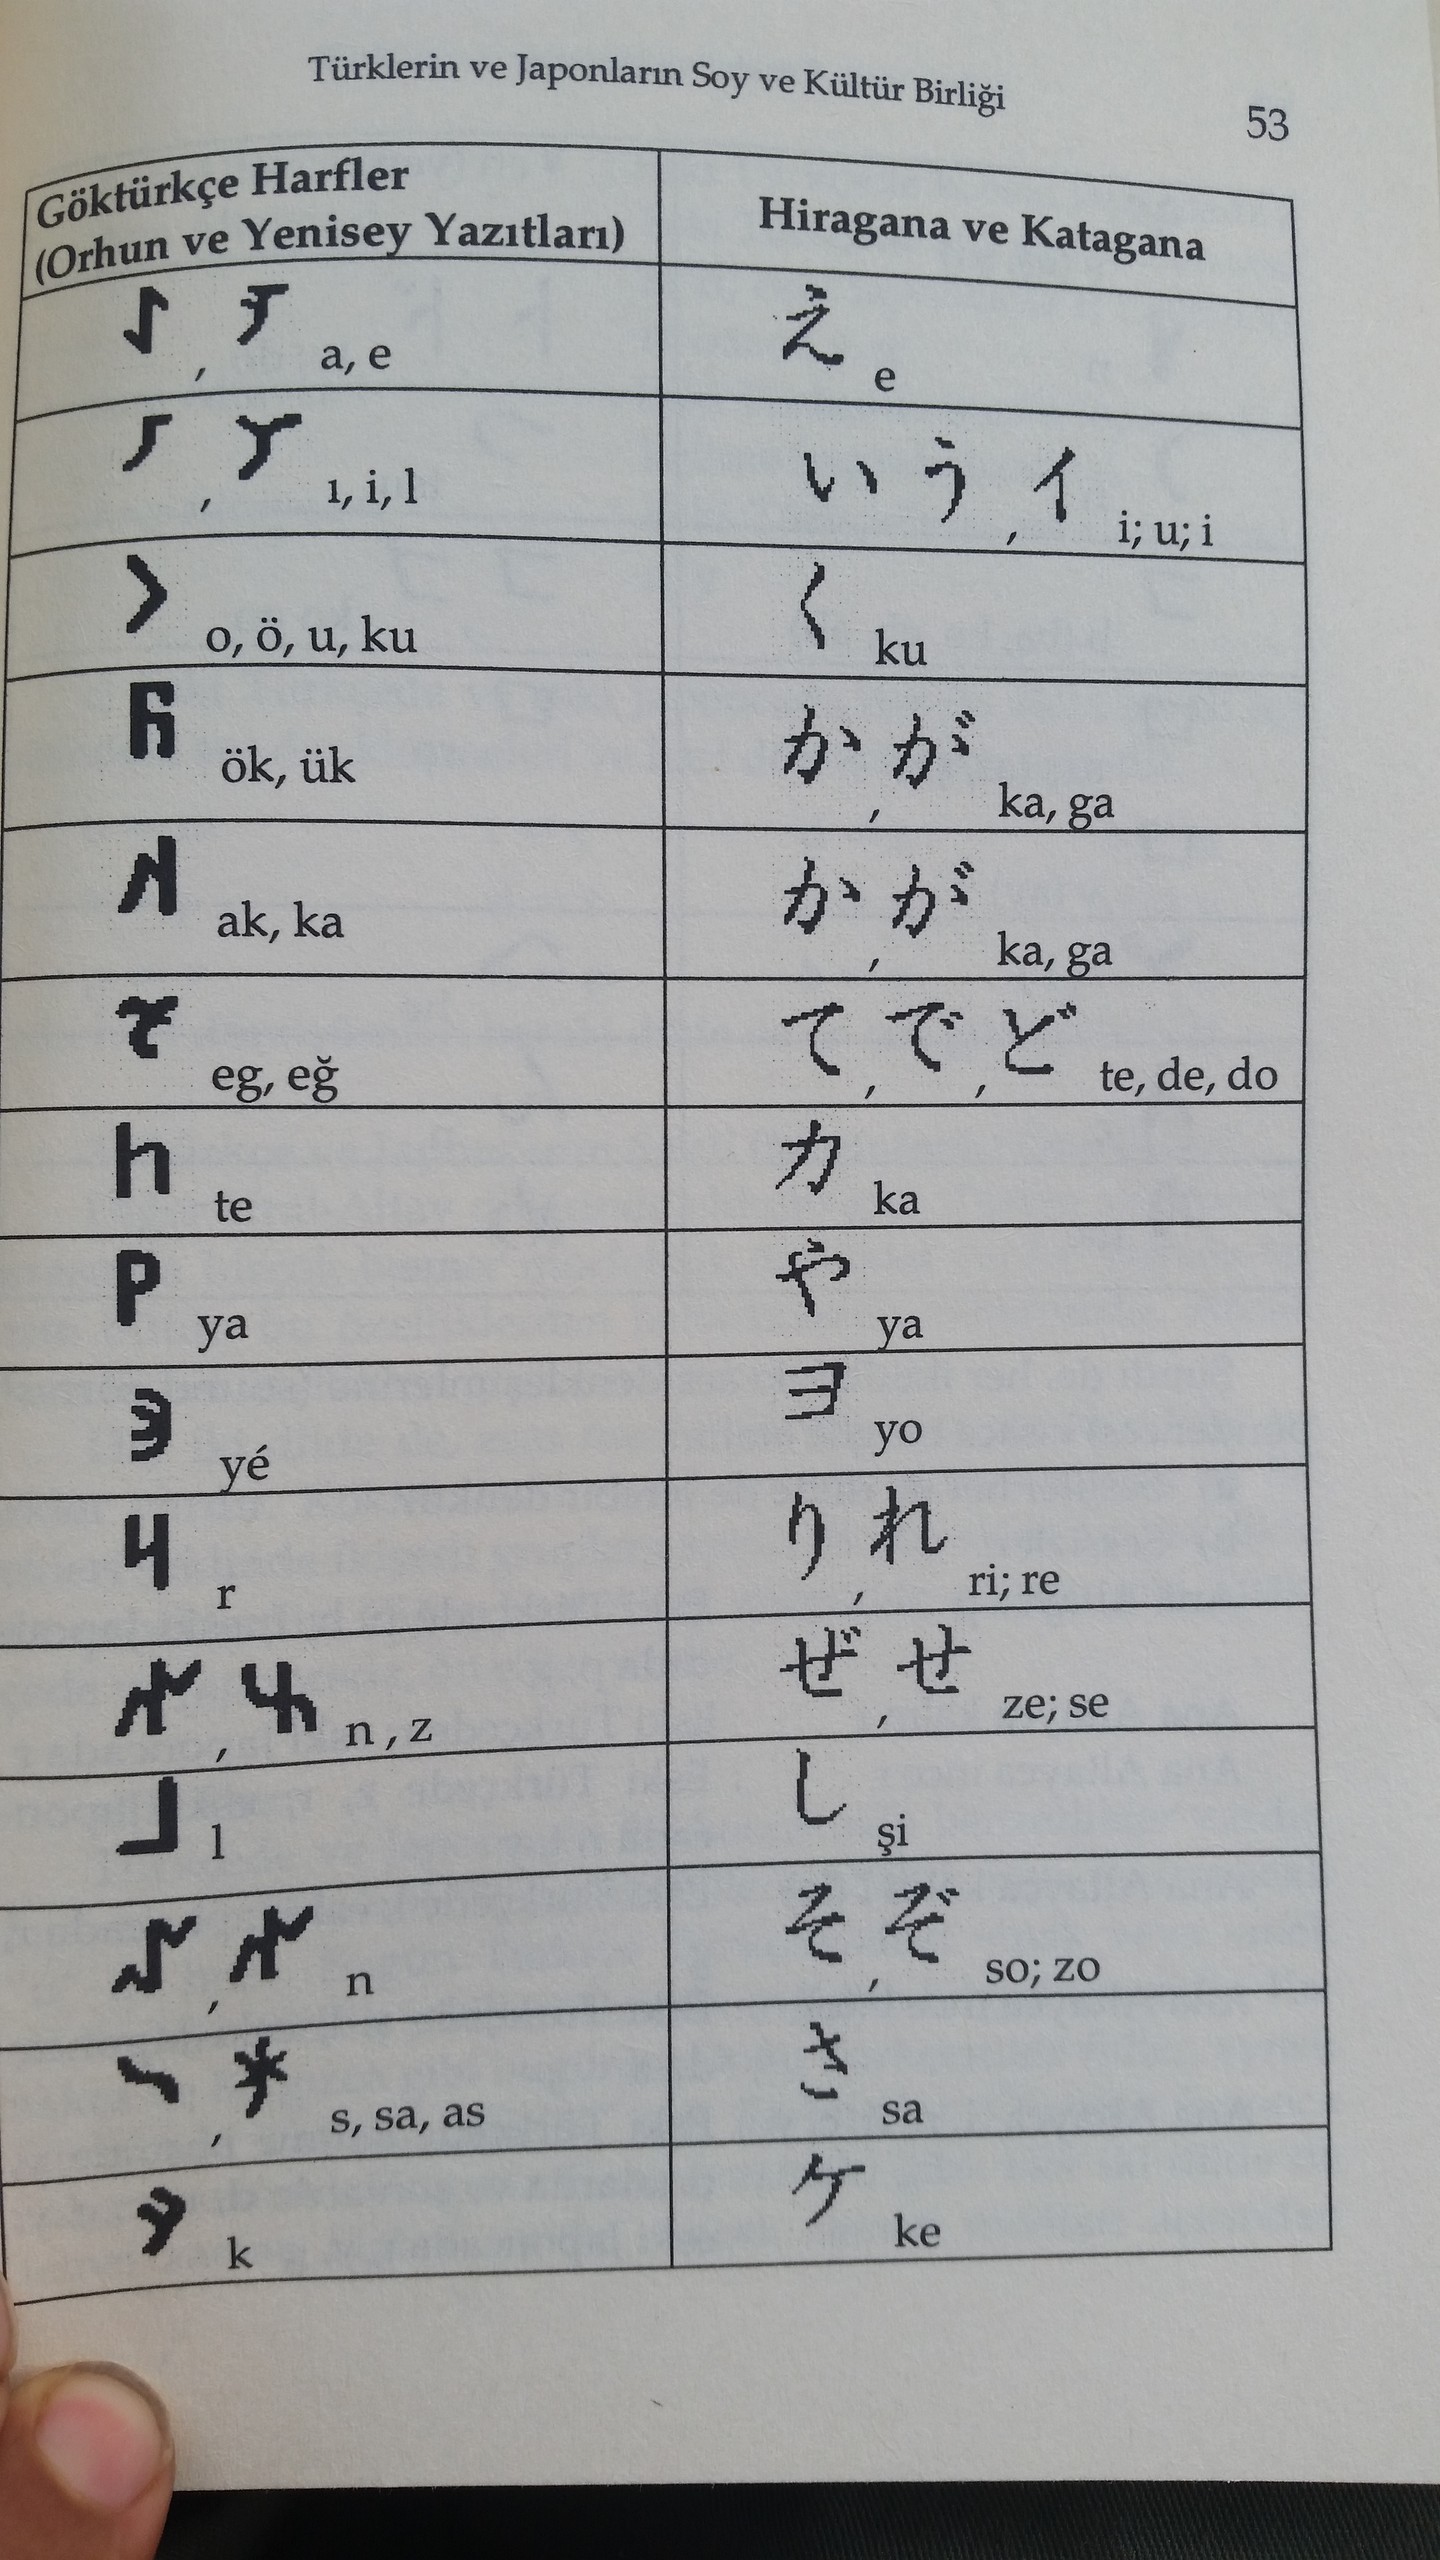 Türklerin ve Japonların Soy ve Kültür Birliği
53
Göktürkçe Harfler
(Orhun ve Yenisey Yazıtları)
Hiragana ve Katagana
, a, e
え e
, ı, i, l
い う , イ i; u; i
𐰆 o, ö, u, ku
く ku
ök, ük
か, が ka, ga
ak, ka
か, が ka, ga
eg, eğ
て, で, ど te, de, do
te
カ ka
ya
や ya
yé
ヨ yo
r
り, れ ri; re
, n , z
ぜ, せ ze; se
l
し şi
, n
そ, ぞ so; zo
, s, sa, as
さ sa
k
ケ ke